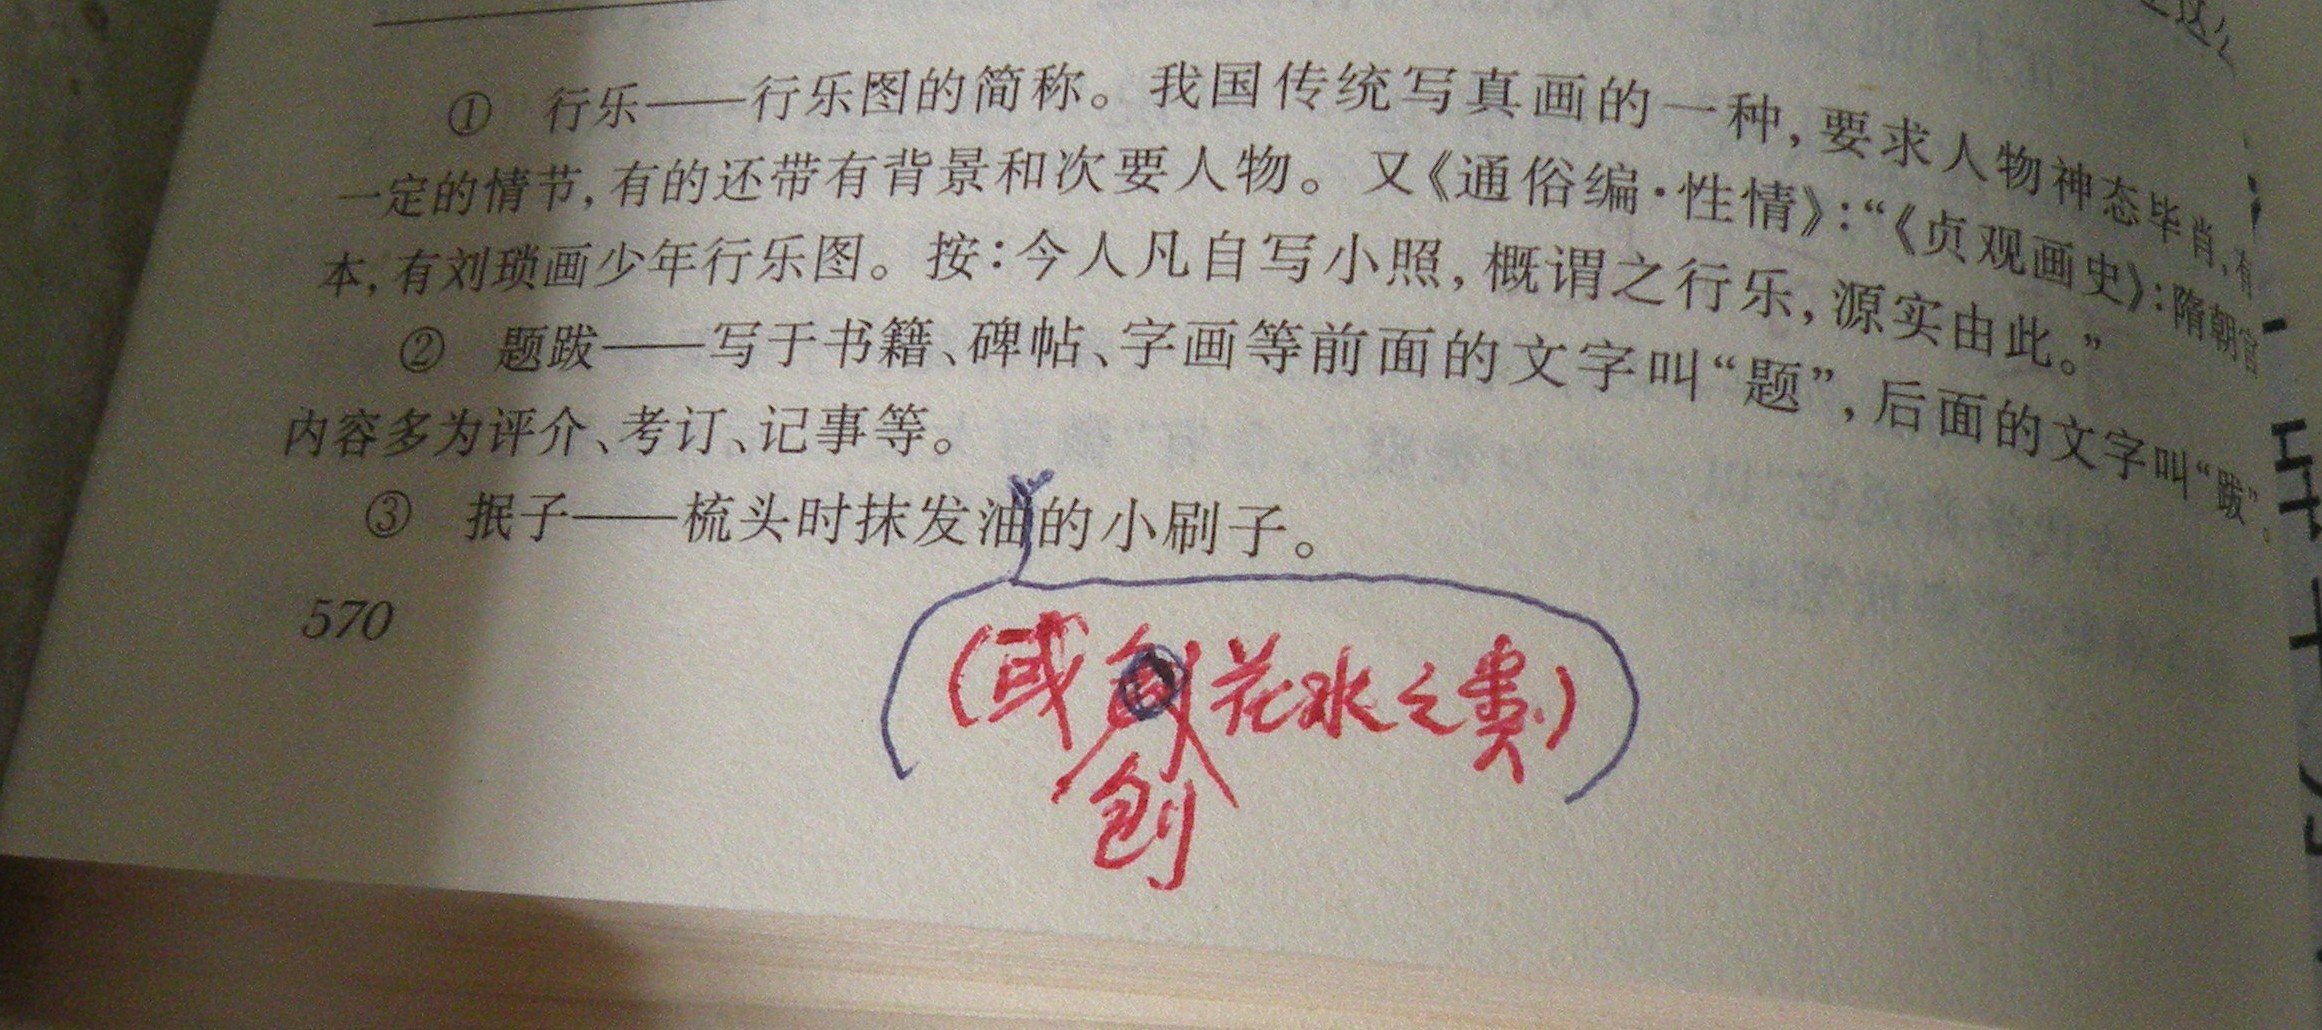 ① 行乐——行乐图的简称。我国传统写真画的一种,要求人物神态毕肖,有
一定的情节,有的还带有背景和次要人物。又《通俗编·性情》:“《贞观画史》:隋朝官
本,有刘琐画少年行乐图。按:今人凡自写小照,概谓之行乐,源实由此。”
② 题跋——写于书籍、碑帖、字画等前面的文字叫“题”,后面的文字叫“跋”。
内容多为评介、考订、记事等。
③ 抿子——梳头时抹发油的小刷子。
570
(或刨花水之类)
刨